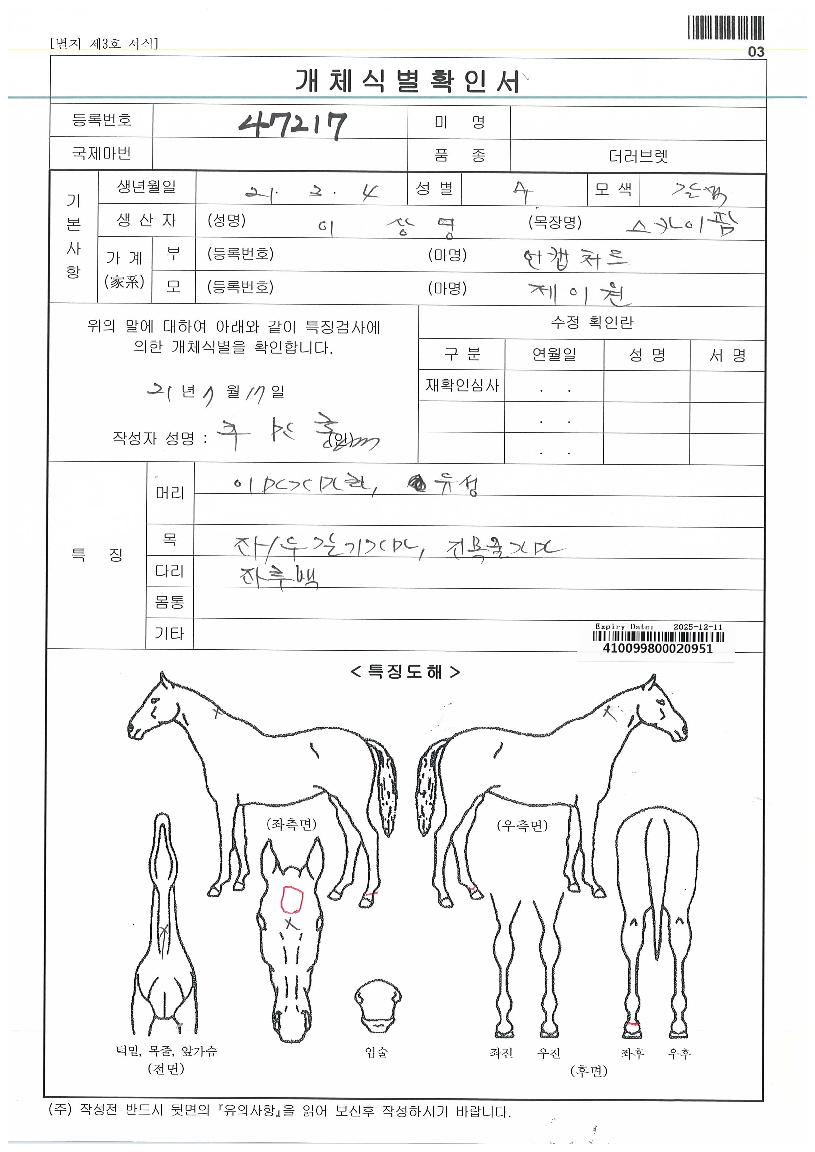 [별지 제3호 서식]
03
개체식별확인서
등록번호 47217 미 명
국제마번 품 종 더러브렛
기본사항
생년월일 21. 2. 4 성 별 모 색
생 산 자 (성명) 이 상 영 (목장명) 스카이팜
가 계 (家系) 부 (등록번호) (미명) 언캡처드
모 (등록번호) (마명) 제이원
위의 말에 대하여 아래와 같이 특징검사에
의한 개체식별을 확인합니다.
21 년 7 월 17 일
작성자 성명 : (인)
수정 확인란
구 분 연월일 성 명 서 명
재확인심사 . .
. .
. .
특 징
머리 유성
목 좌/우
다리 좌후백
몸통
기타
Expiry Date: 2025-12-11
410099800020951
<특징도해>
(좌측면) (우측면)
턱밑, 목줄, 앞가슴
(전면)
입술
좌전 우전 좌후 우후
(후면)
(주) 작성전 반드시 뒷면의 『유의사항』을 읽어 보신후 작성하시기 바랍니다.